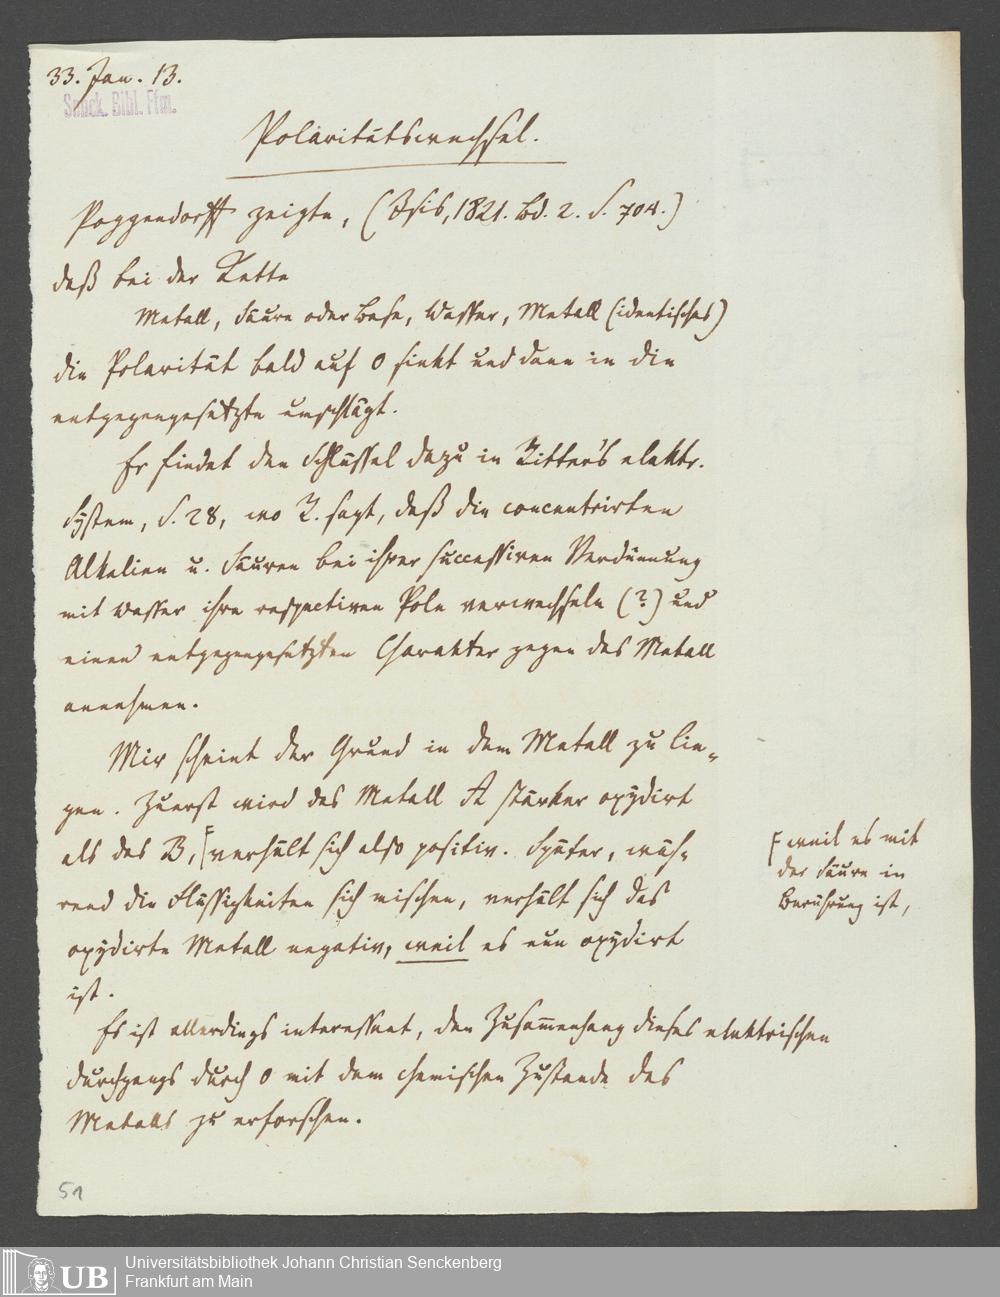 33. Jan. 13.
Senck. Bibl. Ffm.
Polaritätswechsel.
Poggendorff zeigte, (Isis, 1821. Bd. 2. S. 704.)
daß bei der Kette
Metall, Säure oder Base, Wasser, Metall (identisches)
die Polarität bald auf 0 sinkt und dann in die
entgegengesetzte umschlägt.
Er findet den Schlüssel dazu in Ritter's elektr.
System, S. 28, wo R. sagt, daß die concentrirten
Alkalien u. Säuren bei ihrer successiven Verdünnung
mit Wasser ihre respectiven Pole verwechseln (?) und
einen entgegengesetzten Charakter gegen das Metall
annehmen.
Mir scheint der Grund in dem Metall zu lie-
gen. Zuerst wird das Metall A stärker oxydirt
als das B, verhält sich also positiv. Später, wäh-
rend die Flüssigkeiten sich mischen, verhält sich das
oxydirte Metall negativ, weil es nun oxydirt
ist.
weil es mit
der Säure in
Berührung ist,
Es ist allerdings interessant, den Zusammenhang dieses elektrischen
Durchgangs durch 0 mit dem chemischen Zustande des
Metalls zu erforschen.
51
UB
Universitätsbibliothek Johann Christian Senckenberg
Frankfurt am Main